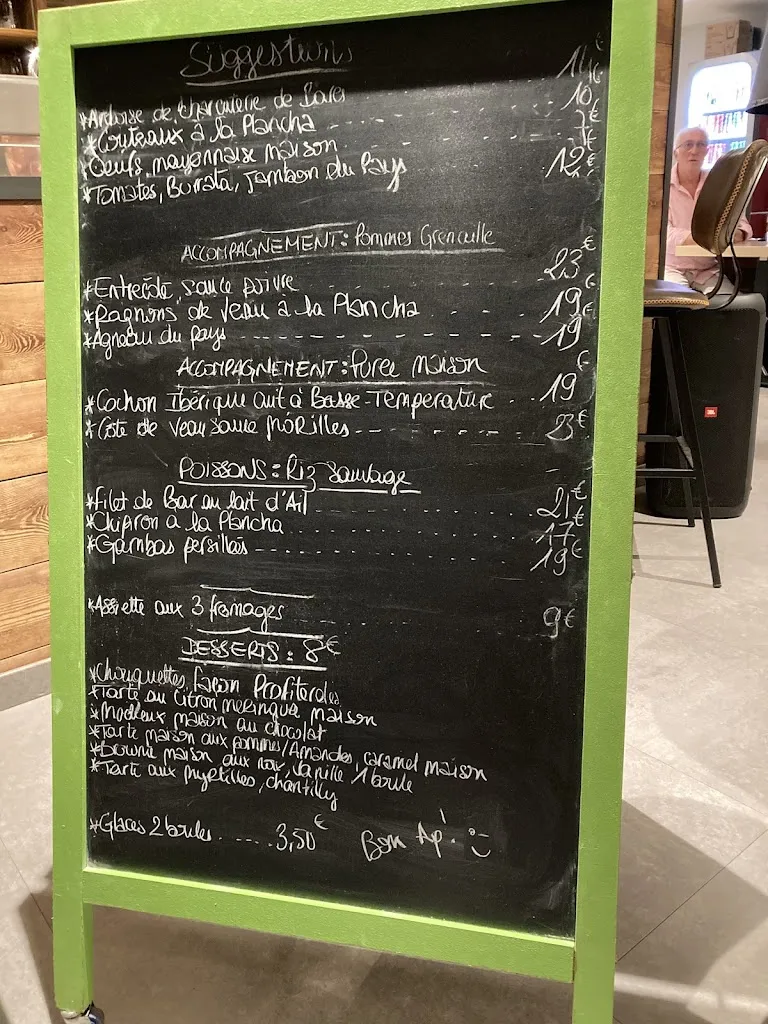 Suggestions
*Ardoise de charcuterie de Bares 14€
*Couteaux à la Plancha 10€
*Oeufs mayonnaise maison €
*Tomates, Burrata, Jambon du Pays 12€
ACCOMPAGNEMENT: Pommes Grenaille
*Entrecôte, sauce poivre 23€
*Rognons de veau à la Plancha 19€
*Agneau du pays 19€
ACCOMPAGNEMENT: Purée maison
*Cochon Ibérique cuit à Basse-Température 19€
*Cote de veau sauce MORILLES 23€
POISSONS: Riz sauvage
*Filet de Bar au lait d'Ail 21€
*Chipiron a la Plancha 17€
*Gambas persillés 19€
*Assiette aux 3 fromages 9€
DESSERTS: 8€
*Chouquettes façon Profiteroles
*Tarte au Citron meringué maison
*Moelleux maison au chocolat
*Tarte maison aux pommes/Amandes, caramel maison
*Brownie maison aux noix, vanille 1 boule
*Tarte aux myrtilles, chantilly
*Glaces 2 boules ..... 3,50€
Bon Ap'! :)
JBL